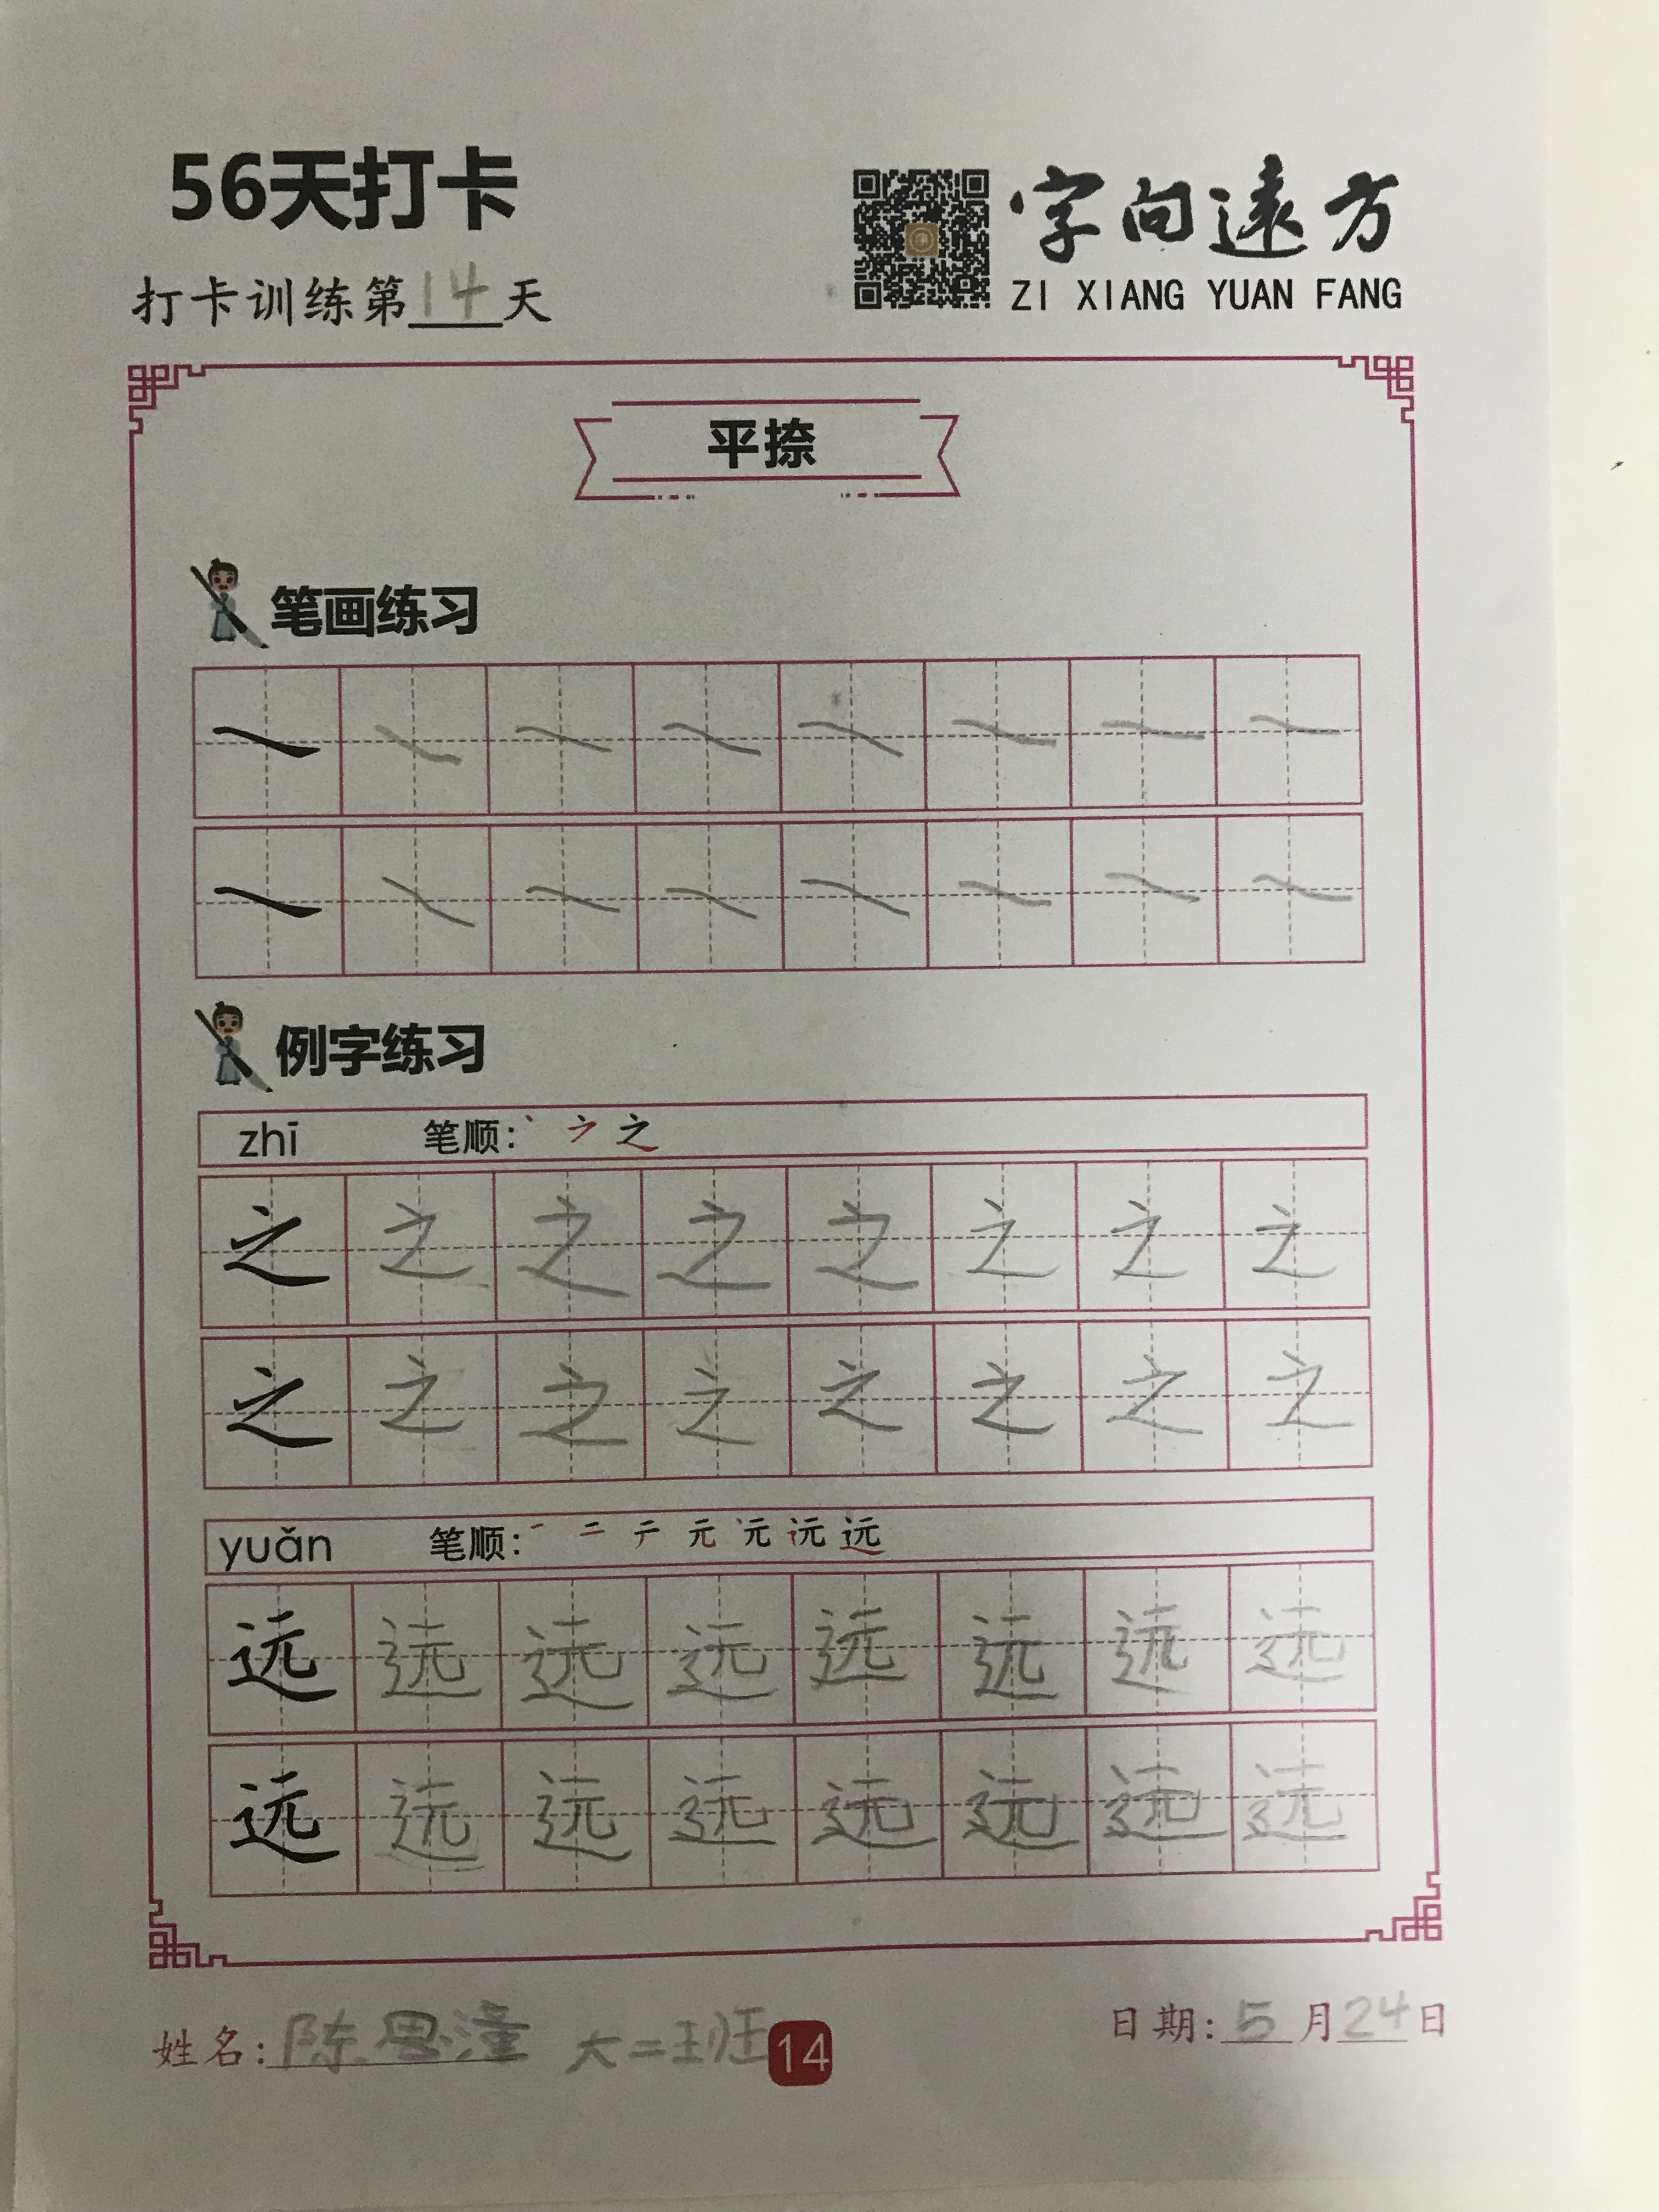 56天打卡
字向遠方
打卡训练第14天
ZI XIANG YUAN FANG
平捺
笔画练习
例字练习
zhī 笔顺: 丶 之
之 之 之 之 之 之 之 之
之 之 之 之 之 之 之 之
yuǎn 笔顺: 一 二 元 远
远 远 远 远 远 远 远 远
远 远 远 远 远 远 远 远
姓名: 陈思潼 大二班 14 日期: 5月24日